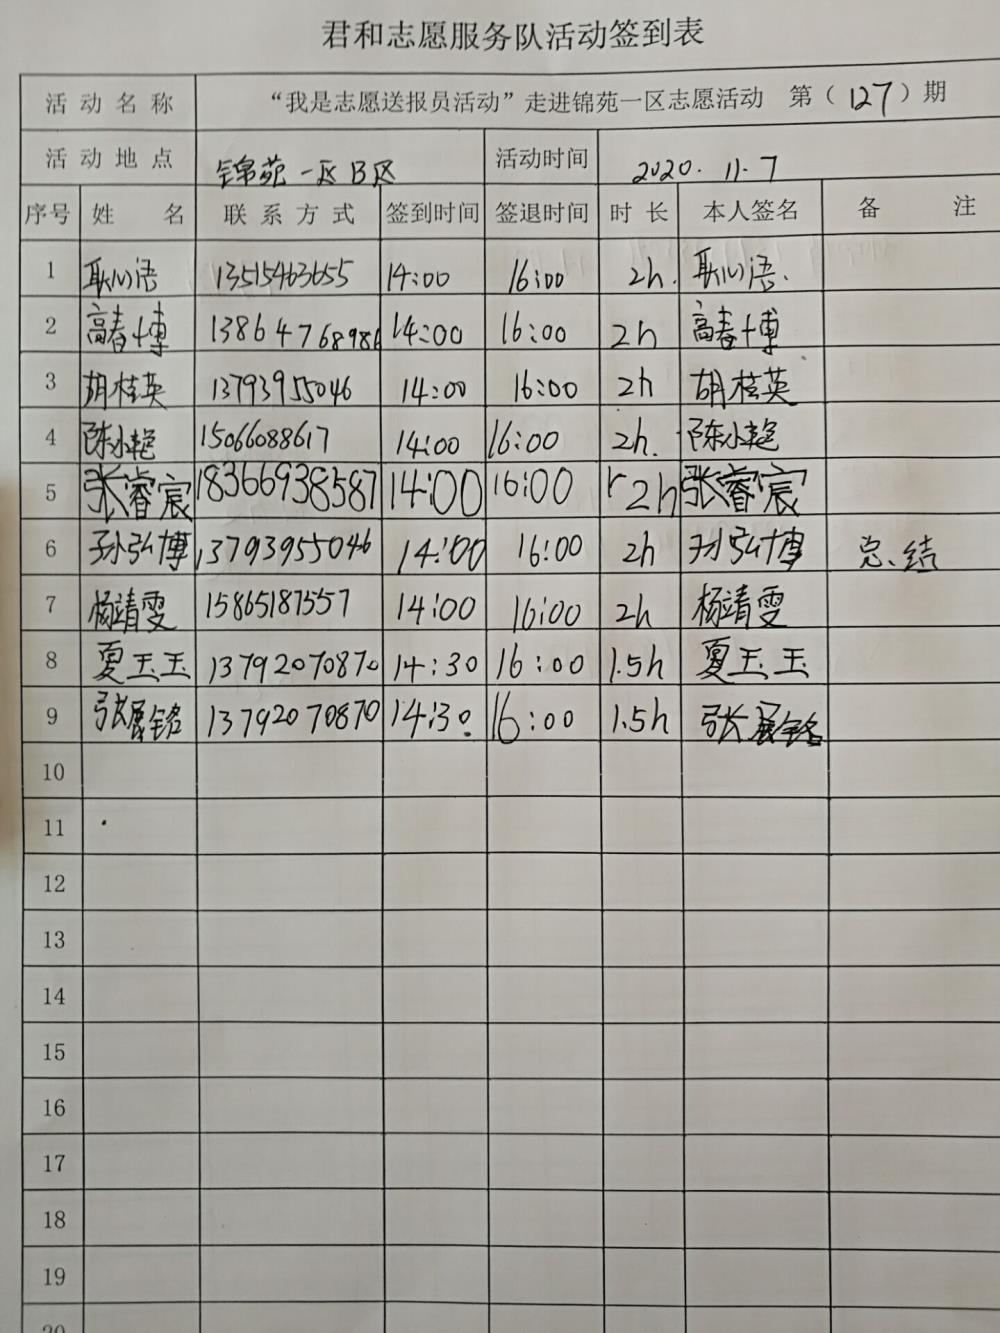 君和志愿服务队活动签到表
活动名称 “我是志愿送报员活动”走进锦苑一区志愿活动 第（127）期
活动地点 锦苑一区B区 活动时间 2020.11.7
序号 姓名 联系方式 签到时间 签退时间 时长 本人签名 备注
1 耿心语 13515463655 14:00 16:00 2h. 耿心语.
2 高春博 13864768986 14:00 16:00 2h 高春博
3 胡桂英 13793955046 14:00 16:00 2h 胡桂英
4 陈小艳 15066088617 14:00 16:00 2h. 陈小艳
5 张睿宸 18366938587 14:00 16:00 2h 张睿宸
6 孙弘博 13793955046 14:00 16:00 2h 孙弘博 总结
7 杨靖雯 15865187557 14:00 16:00 2h 杨靖雯
8 夏玉玉 13792070870 14:30 16:00 1.5h 夏玉玉
9 张展铭 13792070870 14:30. 16:00 1.5h 张展铭
10
11
12
13
14
15
16
17
18
19
20